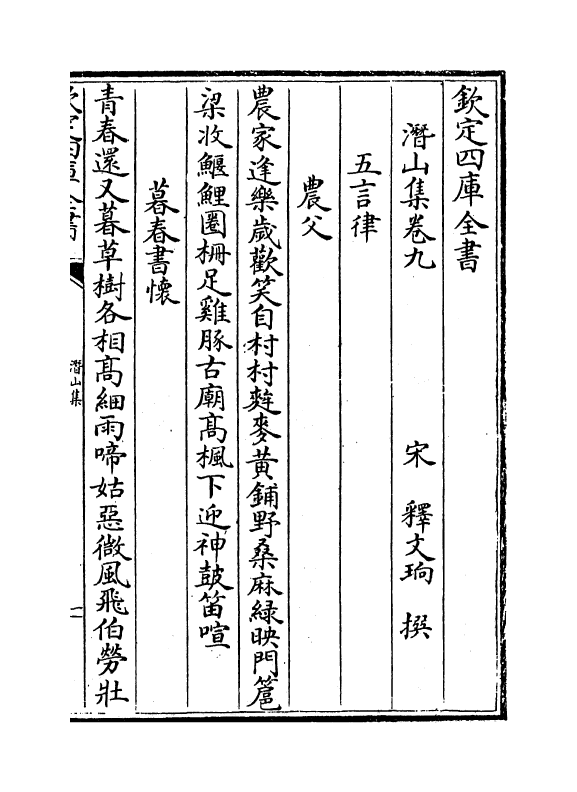 欽定四庫全書
潛山集卷九 宋 釋文珦 撰
五言律
農父
農家逢樂歳歡笑自村村麰麥黃鋪野桑麻緑映門籬
梁收鰋鯉圈柵足雞豚古廟髙楓下迎神鼓笛喧
暮春書懷
青春還又暮草樹各相髙細雨啼姑惡微風飛伯勞壯
潛山集
一